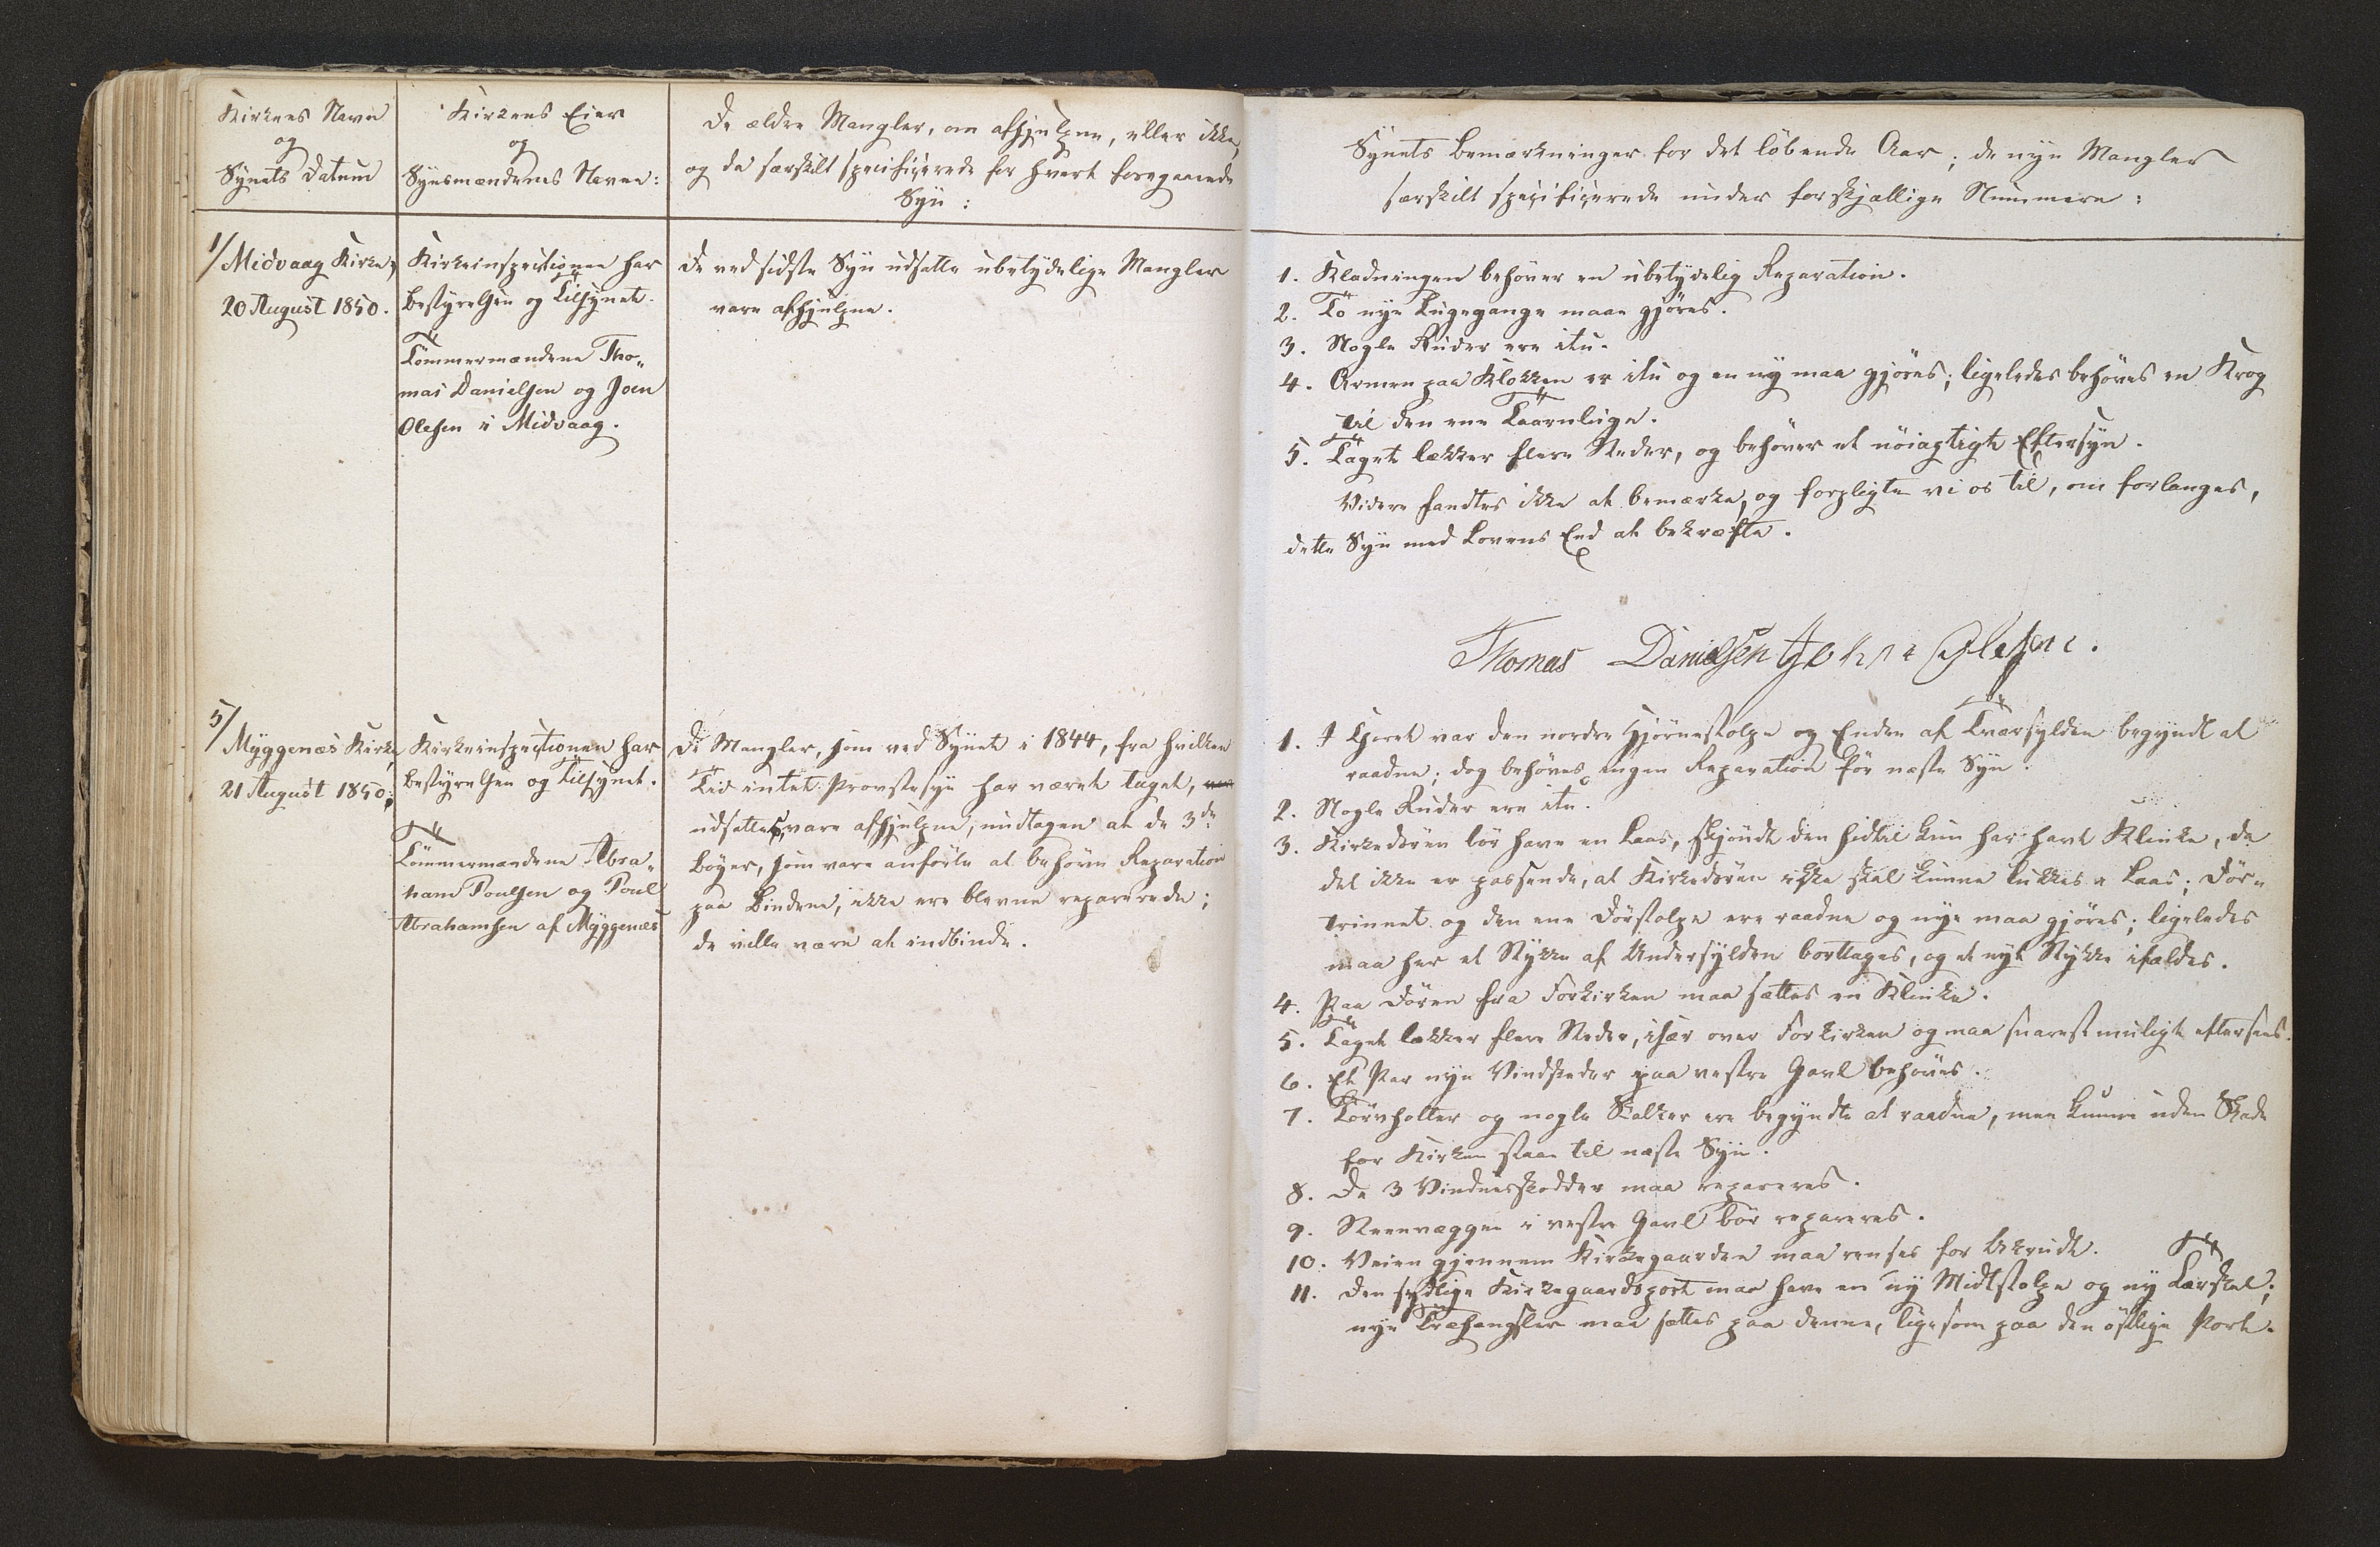 Kirkens Navn
og
Synets Datum
Kirkens Eier
og
Synsmændenes Navne:
De ældre Mangler, om afhjulpne, eller ikke,
og da særskilt specificerede for hvert foregaaende
Syn:
1/ Midvaag Kirke,
20 August 1850.
Kirkeinspectionen har
Bestyrelsen og Tilsynet.
Tömmermændene Tho„
mas Danielsen og Joen
Olesen i Midvaag.
De ved sidste Syn udsatte ubetydelige Mangler
vare afhjulpne.
5/ Myggenæs Kirke,
21 August 1850;
Kirkeinspectionen har
Bestyrelsen og Tilsynet.
Tömmermændene Abra„
ham Poulsen og Poul
Abrahamsen af Myggenæs
De Mangler, som ved Synet i 1844, fra hvilken
Tid intet Provstesyn har været taget,
udsattes, vare afhjulpne, undtagen at de 3de
Bøger, som vare anförte at behöve Reparation
paa Bindene, ikke ere blevne reparerede;
de ville være at indbinde.
Synets Bemærkninger for det löbende Aar; de nye Mangler
særskilt specificerede under forskjællige Nummere:
1. Klædningen behöver en ubetydelig Reparation.
2. To nye Lugegange maae gjöres.
3. Nogle Ruder ere itu.
4. Armen paa Klokken er itu og en ny maa gjöres; ligeledes behöves en Krog
til den ene Taarnluge.
5. Taget lækker flere Steder, og behöver et nöiagtigt Eftersyn.
Videre fandtes ikke at bemærke, og forpligte vi os til, om forlanges,
dette Syn med Lovens Eed at bekræfte.
Thomas Danielsen Johne Olesen.
1. I Choret var den nordre Hjörnestolpe og Enden af Tværsylden begyndt at
raadne; dog behöves ingen Reparation för næste Syn.
2. Nogle Ruder ere itu.
3. Kirkedören bör have en Laas, skjöndt den hidtil kun har havt Klinke, da
det ikke er passende, at Kirkedören ikke skal kunne lukkes i Laas; Dör„
trinnet og den ene Dörstolpe ere raadne og nye maa gjöres; ligeledes
maa her et Stykke af Undersylden borttages, og et nyt Stykke ifældes.
4. Paa Dören fra Forkirken maa sættes en Klinke.
5. Taget lækker flere Steder, især over Forkirken og maa snarest muligt eftersees.
6. Et Par nye Vindskeder paa vestre Gavl behöves.
7. Törvholter og nogle Stolker ere begyndte at raadne, men kunne uden Skade
for Kirken staae til næste Syn.
8. De 3 Vinduesskodder maa repareres.
9. Steenvæggen i vestre Gavl bör repareres.
10. Veien gjennem Kirkegaarden maa renses for Ukrudt.
11. Den sydlige Kirkegaardsport maa have en ny Midtstolpe og ny Tærskel;
nye Træhængsler maa sættes paa denne, ligesom paa den östlige Port.